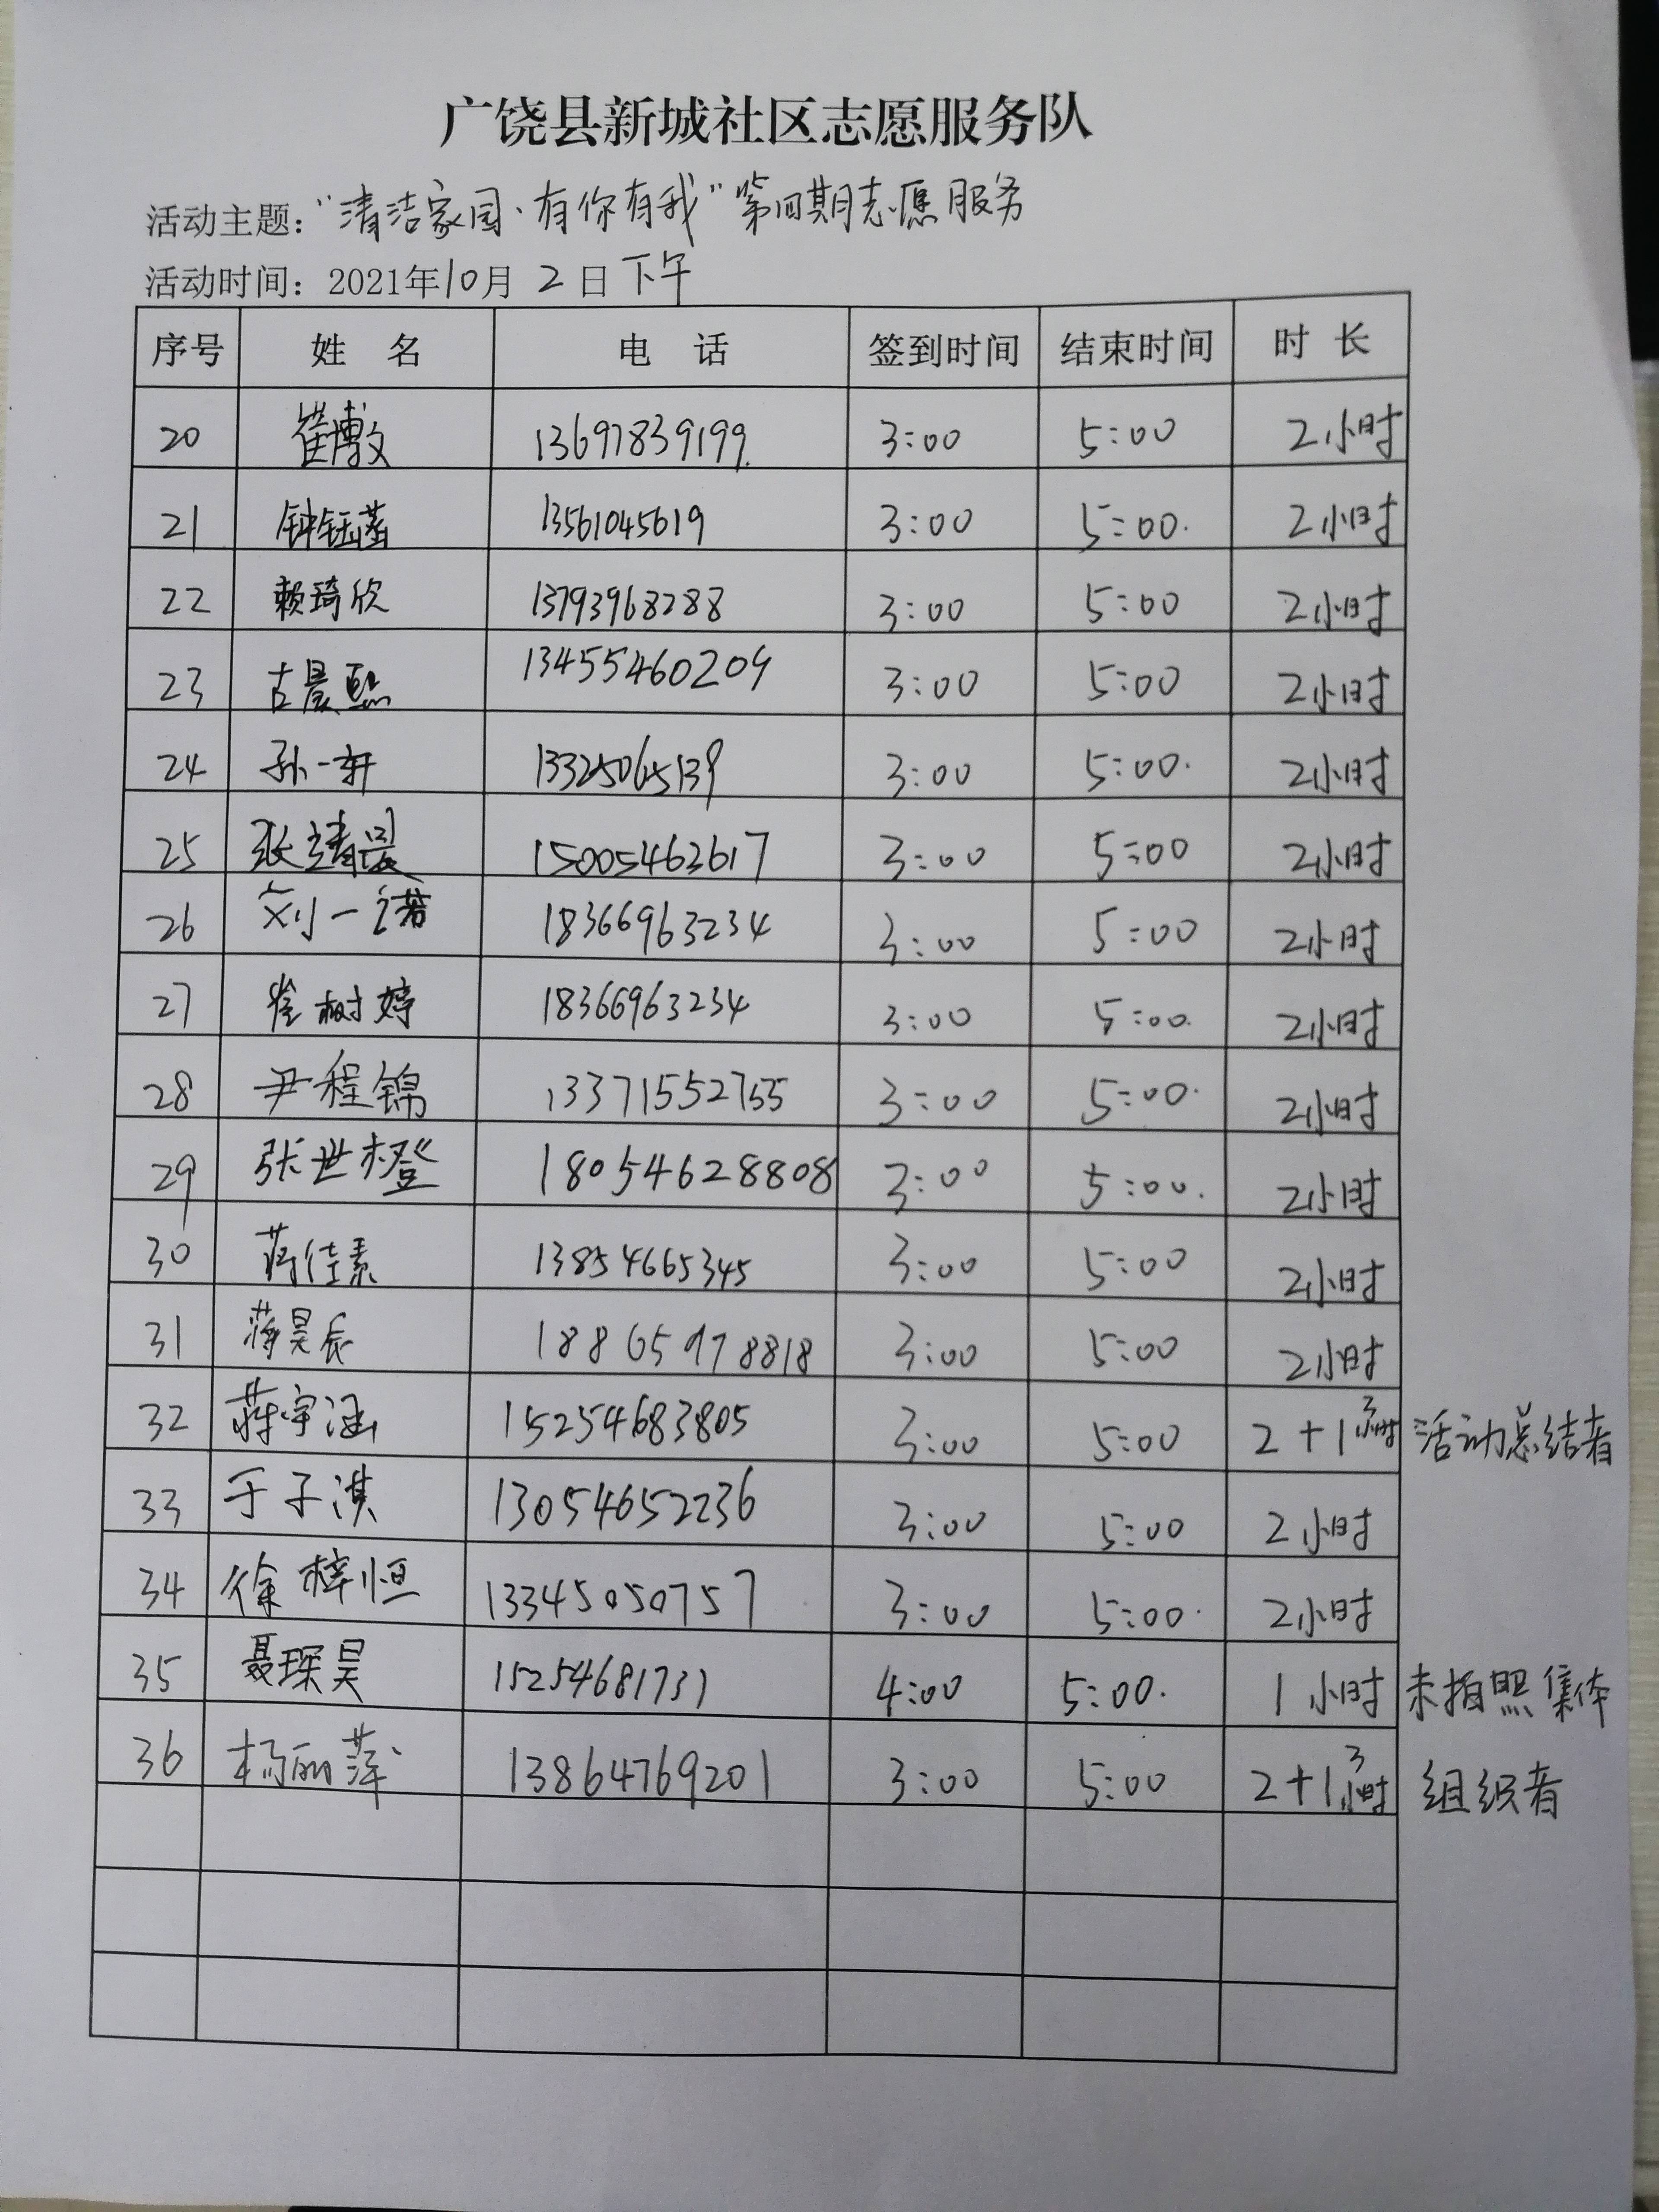 广饶县新城社区志愿服务队
活动主题：“清洁家园·有你有我”第四期志愿服务
活动时间：2021年10月2日下午
序号 姓名 电话 签到时间 结束时间 时长
20 崔博文 13697839199. 3:00 5:00 2小时
21 钟钰菡 13561045619 3:00 5:00. 2小时
22 赖琦欣 13793968288 3:00 5:00 2小时
23 古晨熙 13455460209 3:00 5:00 2小时
24 孙一轩 13325065139 3:00 5:00. 2小时
25 张靖晟 15005463617 3:00 5:00 2小时
26 刘一诺 18366963234 3:00 5:00 2小时
27 崔树婷 18366963234 3:00 5:00. 2小时
28 尹程锦 13371552755 3:00 5:00. 2小时
29 张世橙 18054628808 3:00 5:00. 2小时
30 蒋佳素 13854665345 3:00 5:00 2小时
31 蒋昊辰 18865978818 3:00 5:00 2小时
32 蒋宇涵 15254683805 3:00 5:00 2+1 3小时 活动总结者
33 于子淇 13054652236 3:00 5:00 2小时
34 徐梓恒 13345050757 3:00 5:00. 2小时
35 聂琛昊 15254681731 4:00 5:00. 1小时 未拍照集体
36 杨丽萍 13864769201 3:00 5:00 2+1 3小时 组织者